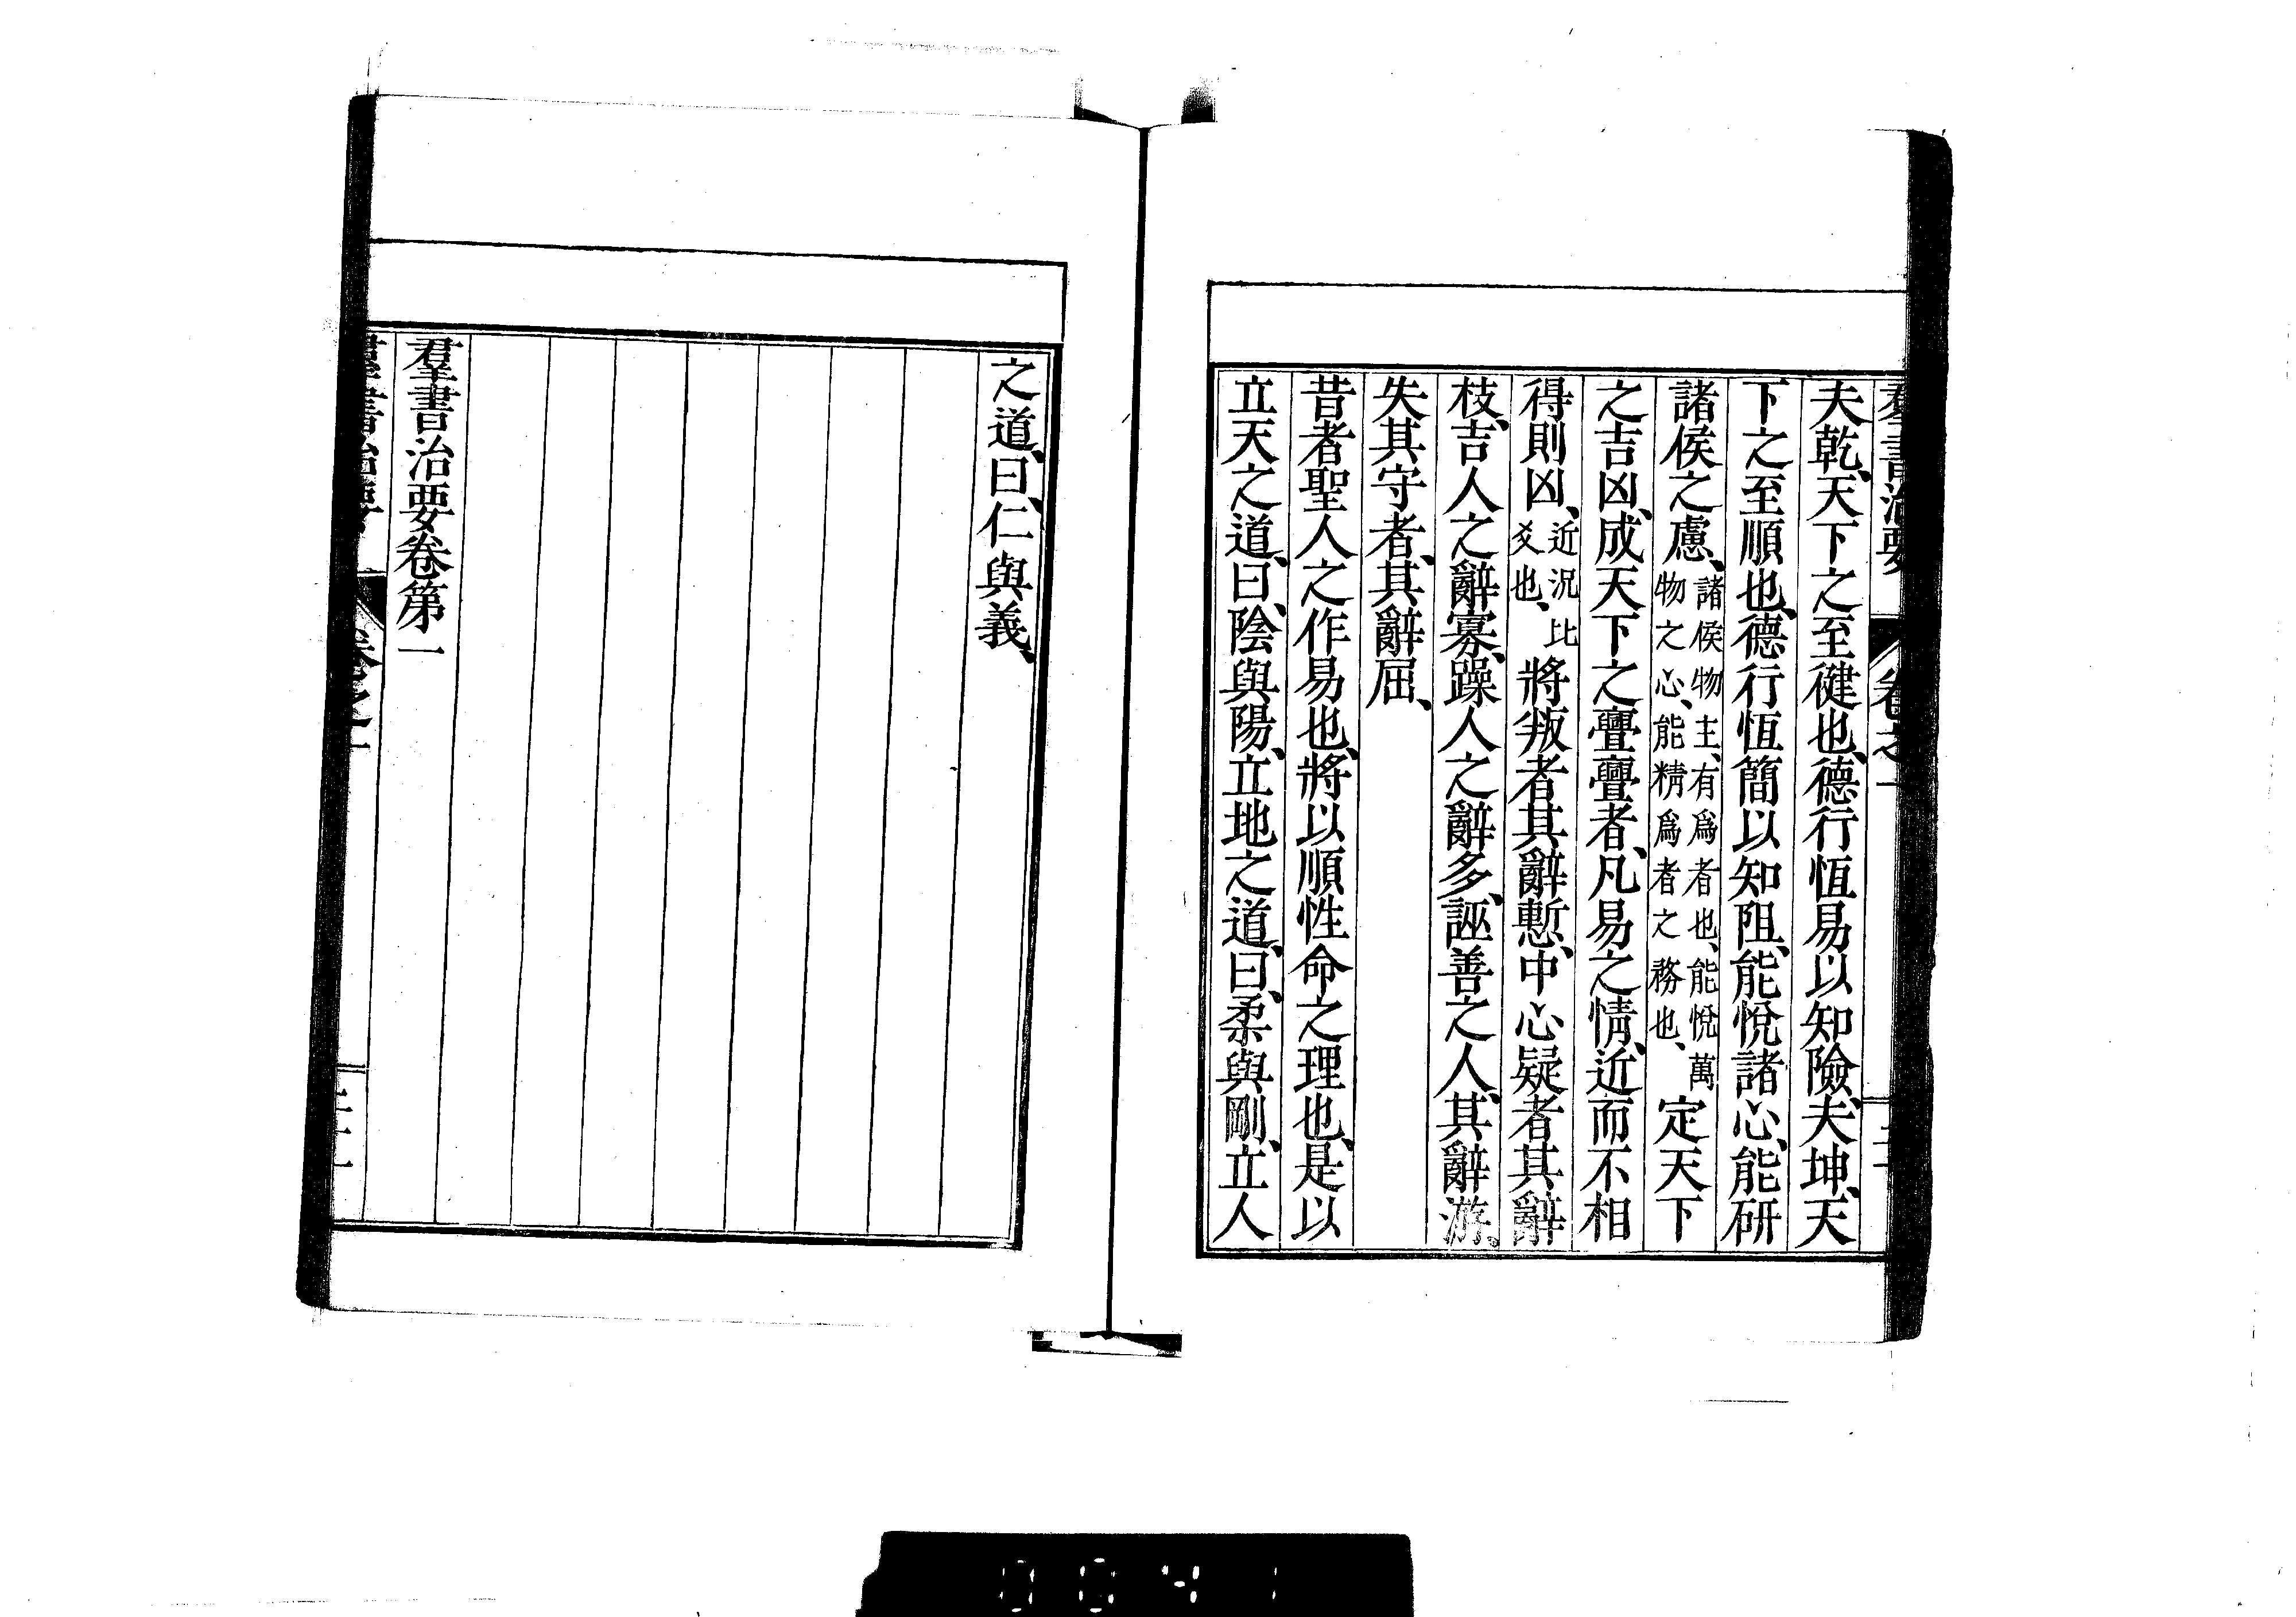 羣書治要 卷之一
夫乾、天下之至健也、德行恆易以知險、夫坤、天
下之至順也、德行恆簡以知阻、能悅諸心、能研
諸侯之慮、諸侯物主、有爲者也、能悅萬物之心、能精爲者之務也、定天下
之吉凶、成天下之亹亹者、凡易之情、近而不相
得則凶、近況比爻也、將叛者其辭慙、中心疑者其辭
枝、吉人之辭寡、躁人之辭多、誣善之人、其辭游、
失其守者、其辭屈、
昔者聖人之作易也、將以順性命之理也、是以
立天之道、曰、陰與陽、立地之道、曰、柔與剛、立人
之道、曰、仁與義、
羣書治要卷第一
羣書治要 卷之一
0041